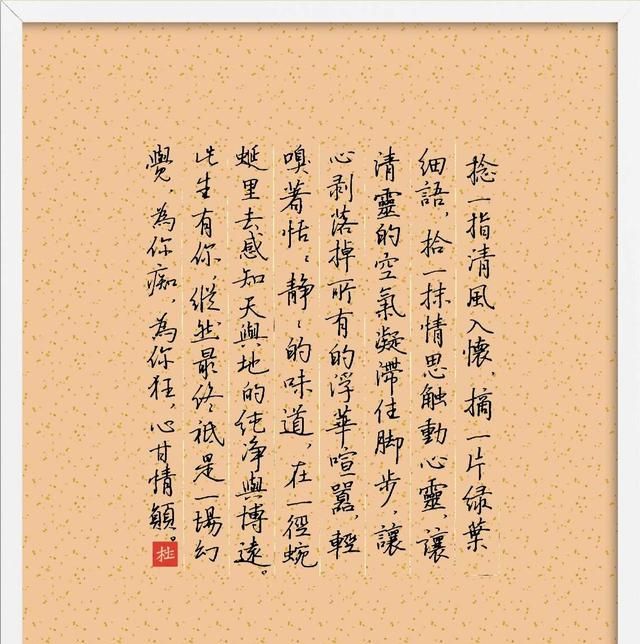 捻一指清風入懷，摘一片绿葉
细語，拾一抹情思触動心靈，讓
清靈的空氣凝滯住脚步，讓
心剥落掉所有的浮華喧囂，輕
嗅著恬、靜、的味道，在一徑蜿
蜒里去感知天與地的纯净與博遠。
此生有你，縱然最终祇是一場幻
覺，為你痴，為你狂，心甘情願。